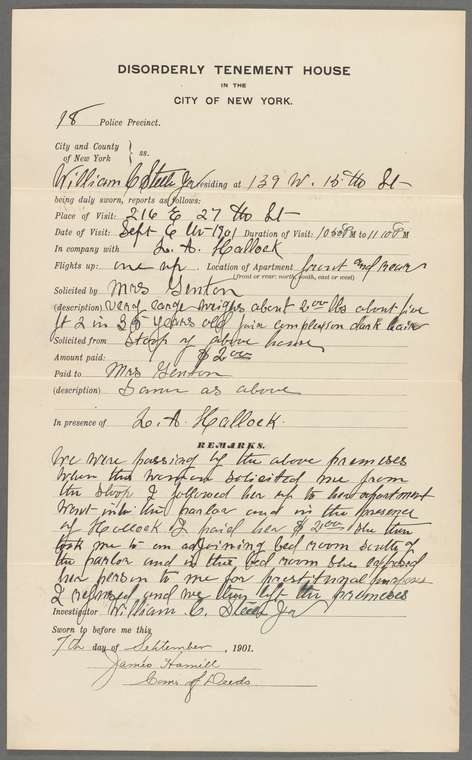 DISORDERLY TENEMENT HOUSE
IN THE
CITY OF NEW YORK.
18 Police Precinct.
City and County of New York } ss.
William C Steele Jr residing at 139 W. 15 th St
being duly sworn, reports as follows:
Place of Visit: 216 E 27 th St
Date of Visit: Sept 6 th 1901 Duration of Visit: 10 50 PM to 11 10 PM
In company with L. A. Hallock
Flights up: one up Location of Apartment front and rear
(front or rear: north, south, east or west)
Solicited by Mrs Genton
(description) very large weighs about 200 lbs about five
ft 2 in 35 years old fair complexion dark hair
Solicited from Stoop of above house
Amount paid: $ 2 00
Paid to Mrs Genton
(description) Same as above
In presence of L. A. Hallock.
REMARKS.
We were passing by the above premises
when this woman solicited me from
the stoop I followed her up to her apartment
went into the parlor and in the presence
of Hallock I paid her $ 2 00 she then
took me to an adjoining bed room south of
the parlor and in this bed room she exposed
her person to me for prostitutional purposes
I refused and we then left the premises
Investigator William C. Steele Jr
Sworn to before me this
7th day of September , 1901.
James Hamill
Comr of Deeds